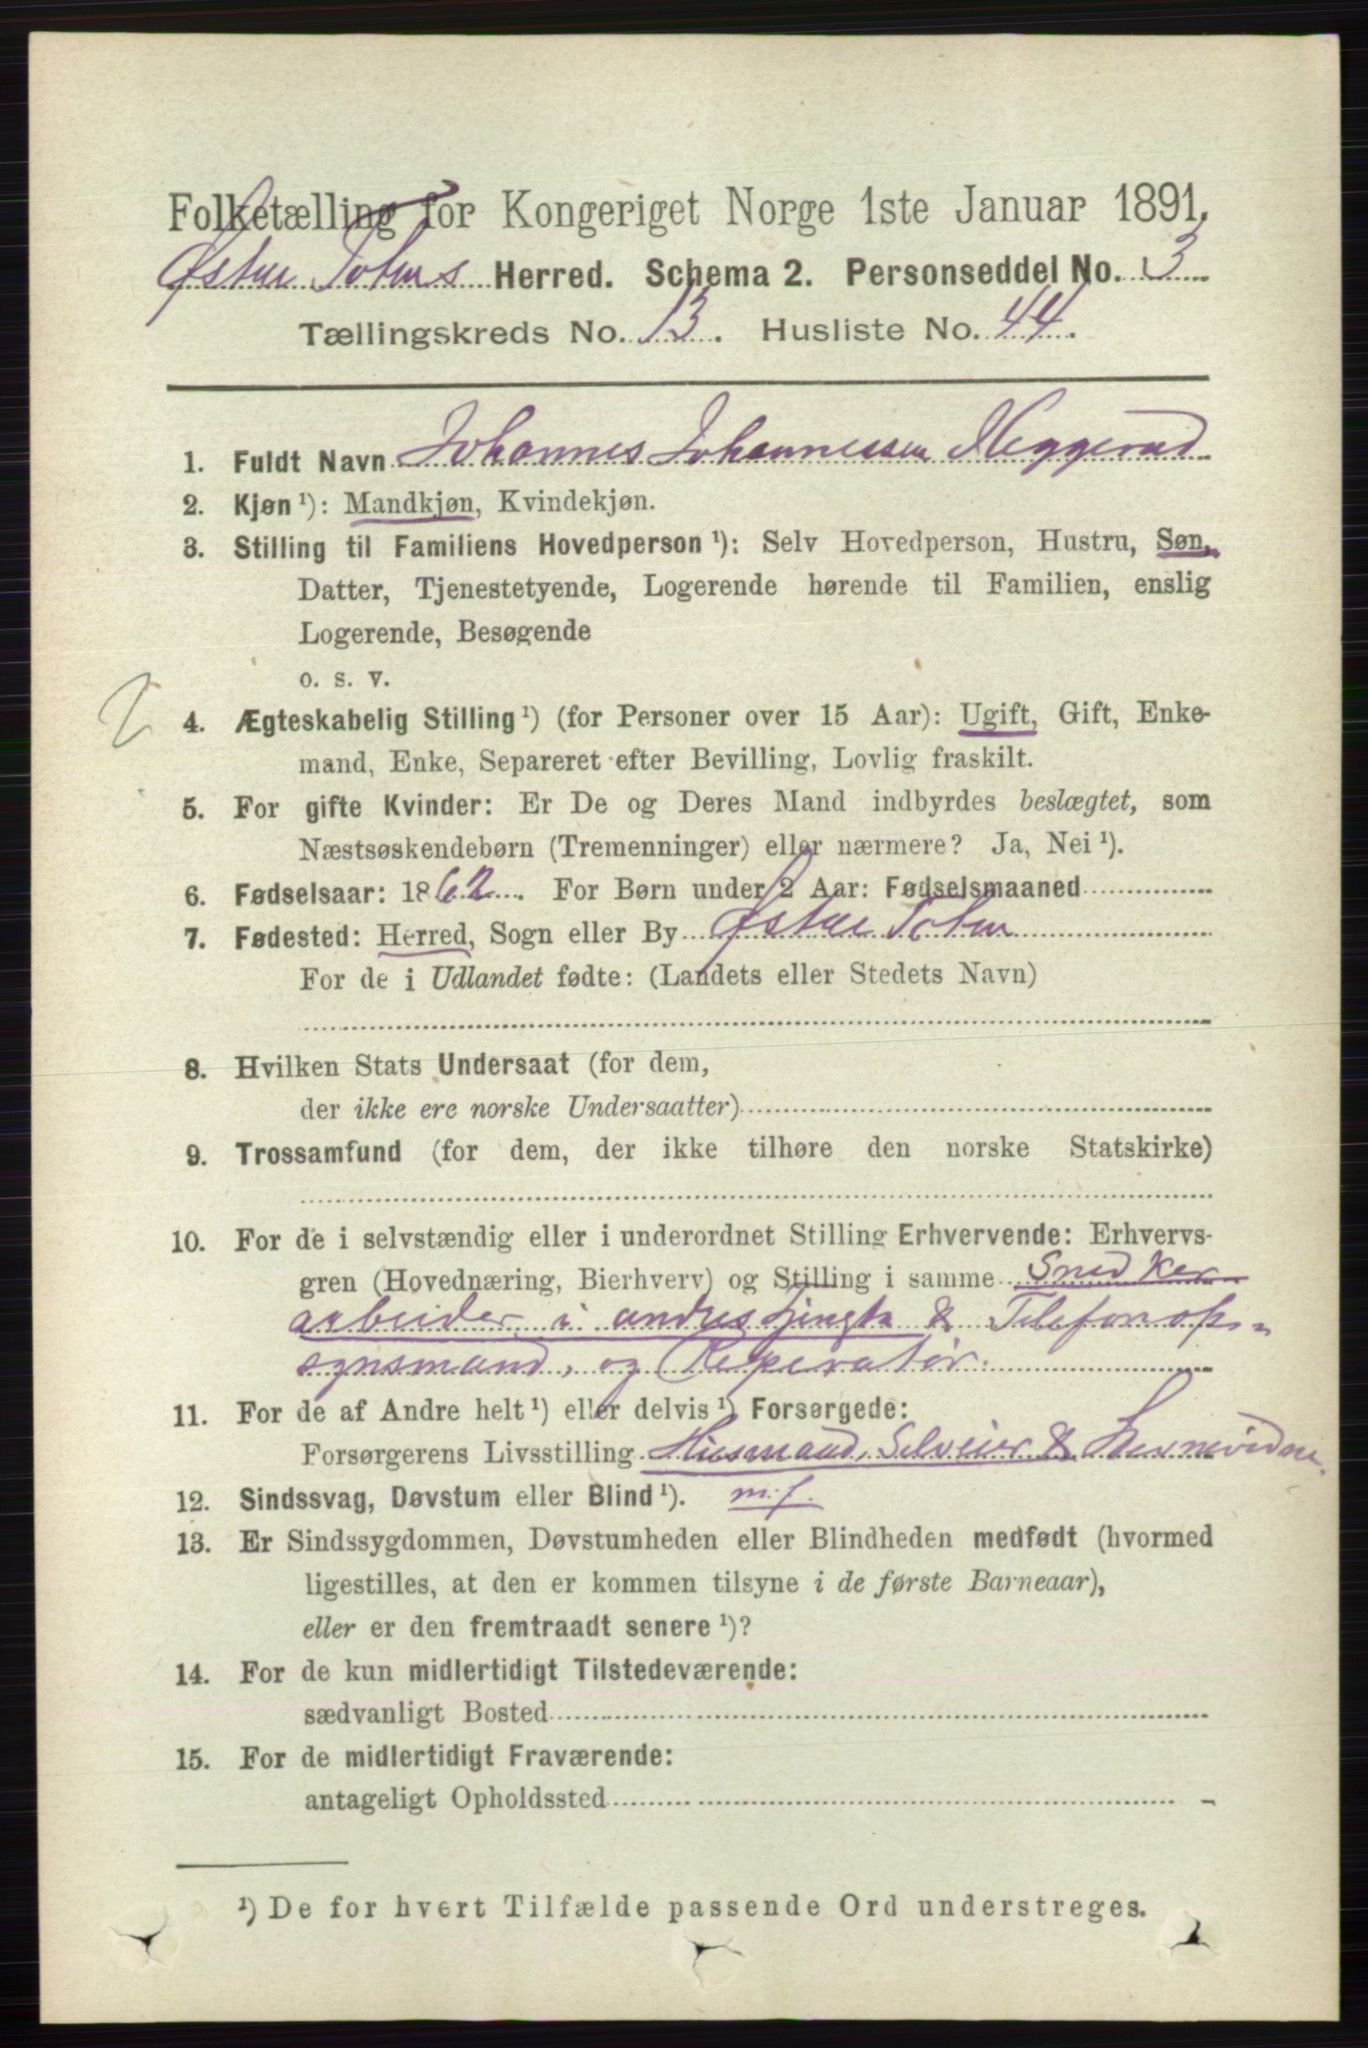 Folketælling for Kongeriget Norge 1ste Januar 1891.
Østre Totens Herred. Schema 2. Personseddel No. 3.
Tællingskreds No. 13. Husliste No. 44.
1. Fuldt Navn Johannes Johannessen Neggerud
2. Kjøn ¹): Mandkjøn, Kvindekjøn.
3. Stilling til Familiens Hovedperson ¹): Selv Hovedperson, Hustru, Søn,
Datter, Tjenestetyende, Logerende hørende til Familien, enslig
Logerende, Besøgende
o. s. v.
4. Ægteskabelig Stilling ¹) (for Personer over 15 Aar): Ugift, Gift, Enke-
mand, Enke, Separeret efter Bevilling, Lovlig fraskilt.
5. For gifte Kvinder: Er De og Deres Mand indbyrdes beslægtet, som
Næstsøskendebørn (Tremenninger) eller nærmere? Ja, Nei ¹).
6. Fødselsaar: 1862. For Børn under 2 Aar: Fødselsmaaned
7. Fødested: Herred, Sogn eller By Østre Toten
For de i Udlandet fødte: (Landets eller Stedets Navn)
8. Hvilken Stats Undersaat (for dem,
der ikke ere norske Undersaatter)
9. Trossamfund (for dem, der ikke tilhøre den norske Statskirke)
10. For de i selvstændig eller i underordnet Stilling Erhvervende: Erhvervs-
gren (Hovednæring, Bierhverv) og Stilling i samme Snedker
arbeider i andres & Telefonop-
synsmand, og Reperatør.
11. For de af Andre helt ¹) eller delvis ¹) Forsørgede:
Forsørgerens Livsstilling Husmand, Selveier &
12. Sindssvag, Døvstum eller Blind ¹). m.f.
13. Er Sindssygdommen, Døvstumheden eller Blindheden medfødt (hvormed
ligestilles, at den er kommen tilsyne i de første Barneaar),
eller er den fremtraadt senere ¹)?
14. For de kun midlertidigt Tilstedeværende:
sædvanligt Bosted
15. For de midlertidigt Fraværende:
antageligt Opholdssted
¹) De for hvert Tilfælde passende Ord understreges.